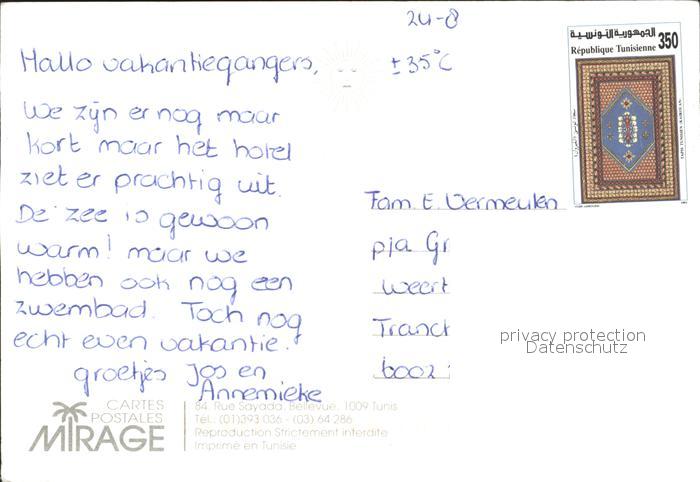 24-8
Hallo vakantiegangers,
± 35°C
We zijn er nog maar
kort maar het hotel
ziet er prachtig uit.
De zee is gewoon
warm! maar we
hebben ook nog een
zwembad. Toch nog
echt even vakantie.
groetjes Jos en
Annemieke
الجمهورية التونسية
République Tunisienne 350
Fam. E. Vermeulen
p/a Gr
weert
Tranct
6002
privacy protection
Datenschutz
CARTES
POSTALES
MIRAGE
84, Rue Sayada, Bellevue, 1009 Tunis
Tél.: (01)393 036 - (03) 64 286
Reproduction Strictement interdite
Imprimé en Tunisie